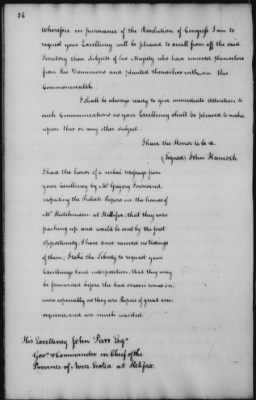 36
Wherefore in pursuance of the Resolution of Congress I am to
request your Excellency will be pleased to recall from off the said
Territory these Subjects of his Majesty who have removed themselves
from His Dominions and planted themselves within this
Commonwealth.
I shall be always ready to give immediate Attention to
such Communications as your Excellency shall be pleased to make
upon this or any other Subject.
I have the Honor to be &c
(Signed) John Hancock
I had the honor of a verbal message from
your Excellency by Mr Gregory Townsend
respecting the Probate Papers in the hands of
Mr Hutchinson at Hallifax, that they were
packing up and would be sent by the first
Opportunity. I have not received no tidings
of them, I take the Liberty to request your
Excellencys kind interposition, that they may
be forwarded before the bad season comes on,
more especially as they are Papers of great con-
sequence, and are much wanted.
His Excellency John Parr Esqr
Govr & Commander in Chief of the
Province of Nova Scotia at Halifax